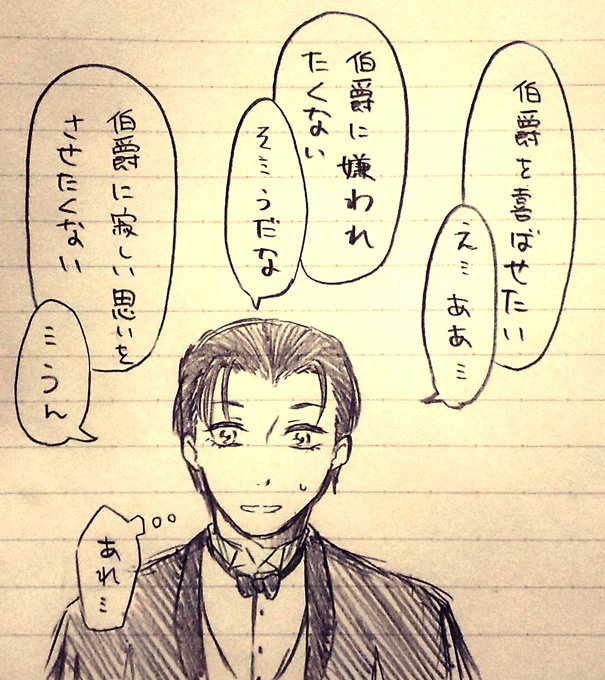 伯爵を喜ばせたい
え… ああ…
伯爵に嫌われ
たくない
そ…うだな
伯爵に寂しい思いを
させたくない
…うん
あれ…